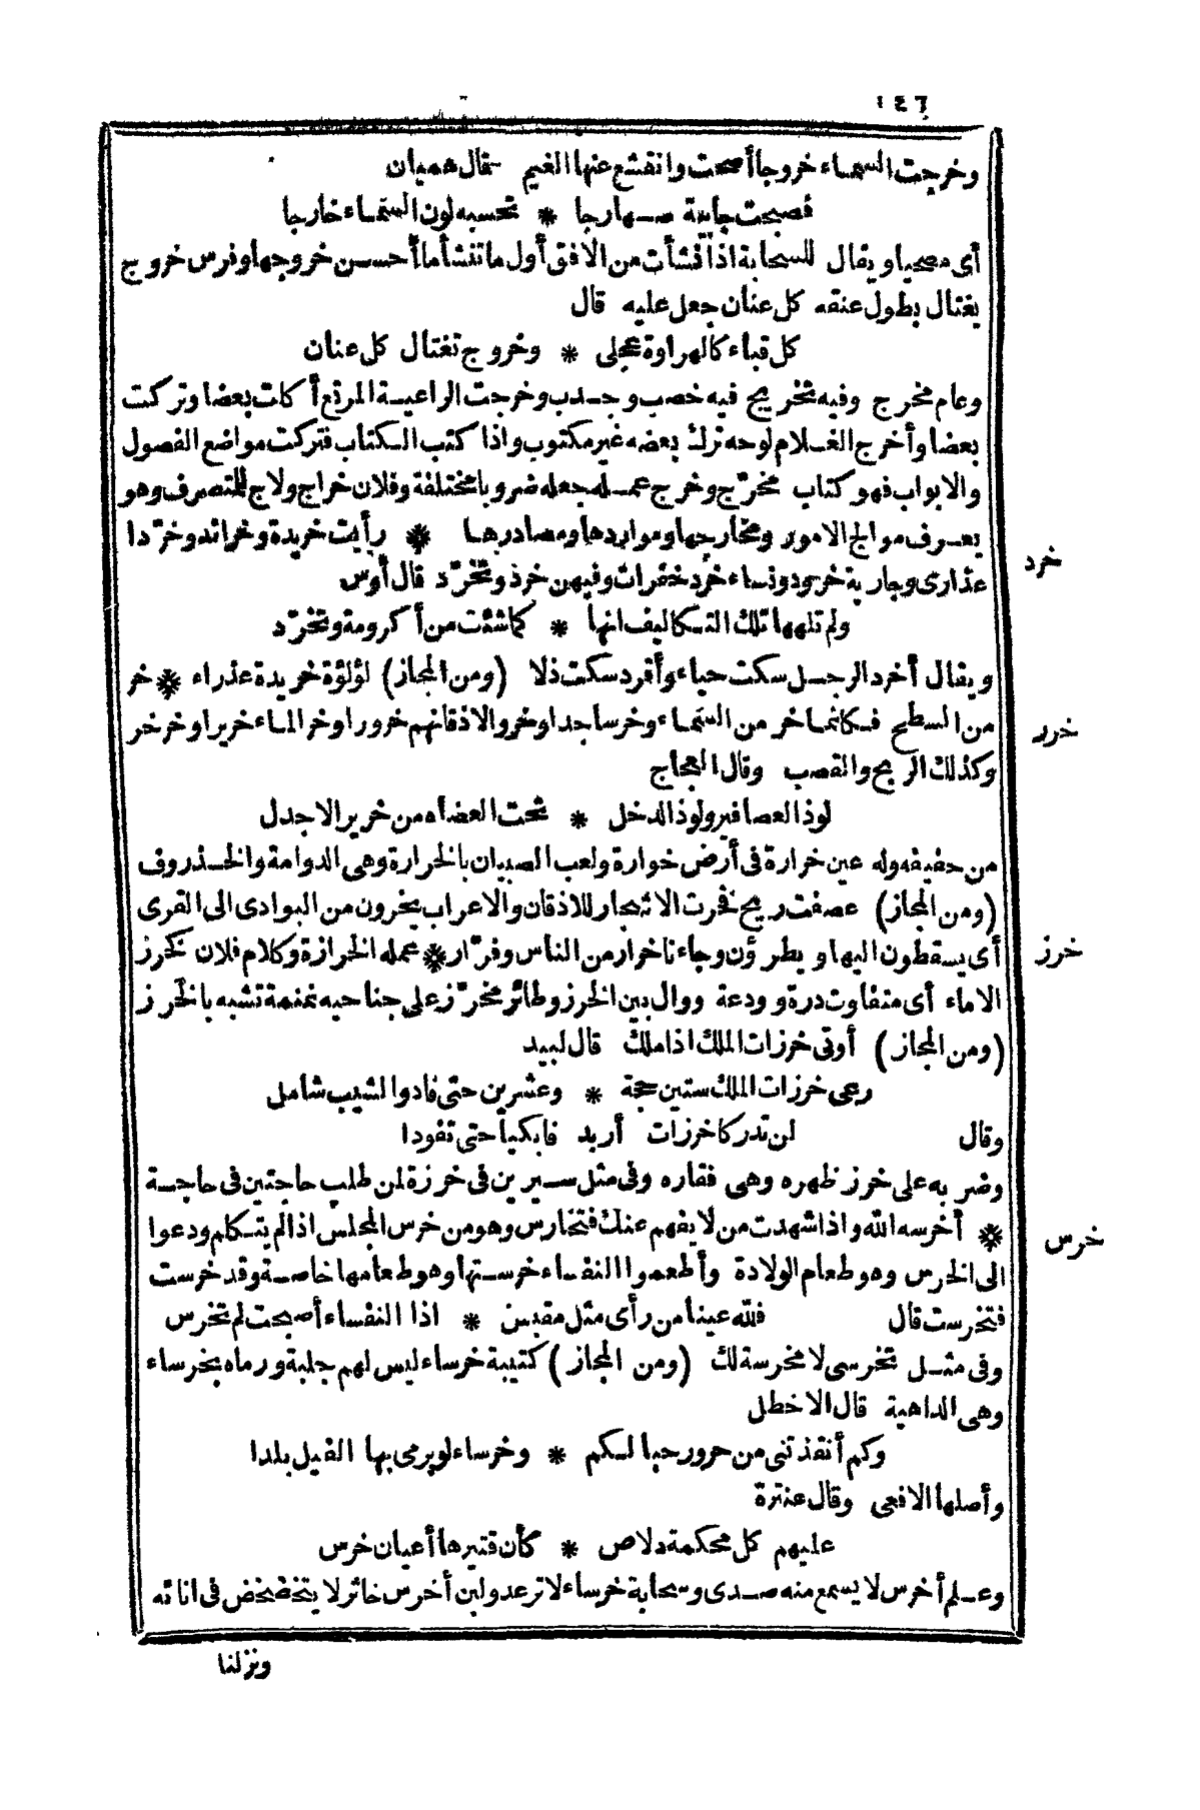 ١٤٦
وخرجت السماء خروجا أصحت وانقشع عنها الغيم قال هميان
فصبحت جابية صهارجا * تحسبه لون السماء خارجا
أى مصحيا ويقال للسحابة اذا نشأت من الافق أول ما تنشأ ما أحسن خروجها وفرس خروج
يغتال بطول عنقه كل عنان جعل عليه قال
كل قباء كالهراوة عجلى * وخروج تغتال كل عنان
وعام مخرج وفيه تخريج فيه خصب وجدب وخرجت الراعية المرتع أكلت بعضا وتركت
بعضا وأخرج الغلام لوحه ترك بعضه غير مكتوب واذا كتب الكتاب فتركت مواضع الفصول
والابواب فهو كتاب مخرّج وخرج عمله جعله ضروبا مختلفة وفلان خراج ولاج للمتصرف وهو
يعرف موالج الامور ومخارجها ومواردها ومصادرها * رأيت خريدة وخرائد وخرّدا
خرد
عذارى وجارية خرود ونساء خرد خفرات وفيهن خرد وتخرّد قال أوس
ولم تلهها تلك التكاليف انها * كما شئت من أكرومة وتخرّد
ويقال أخرد الرجل سكت حياء وأقرد سكت ذلا (ومن المجاز) لؤلؤة خريدة عذراء * خر
من السطح فكانما خر من السماء وخر ساجدا وخروا لاذقانهم خرورا وخر الماء خريرا وخرخر
خرر
وكذلك الريح والقصب وقال العجاج
لوذ العصافير ولوذ الدخل * تحت العضاه من خرير الاجدل
من حفيفه وله عين خرارة فى أرض خوارة ولعب الصبيان بالخرارة وهى الدوامة والخذروف
(ومن المجاز) عصفت ريح فخرت الاشجار للاذقان والاعراب يخرون من البوادى الى القرى
أى يسقطون اليها ويطرؤن وجاءنا خرار من الناس وفرّار * عمله الخرازة وكلام فلان كخرز
خرز
الاماء أى متفاوت درة وودعة ووال بين الخرز وطائر مخرّز على جناحيه نمنمة تشبه بالخرز
(ومن المجاز) أوتى خرزات الملك اذا ملك قال لبيد
رعى خرزات الملك ستين حجة * وعشرين حتى فاد والشيب شامل
وقال لن تدركا خرزات أربد فابكيا حتى تفودا
وضربه على خرز ظهره وهى فقاره وفى مثل سيرين فى خرزة لمن طلب حاجتين فى حاجة
* أخرسه الله واذا شهدت من لا يفهم عنك فتخارس وهو من خرس المجلس اذا لم يتكلم ودعوا
خرس
الى الخرس وهو طعام الولادة وأطعموا النفساء خرستها وهو طعامها خاصة وقد خرست
فتخرست قال فلله عينا من رأى مثل مقيس * اذا النفساء أصبحت لم تخرس
وفى مثل تخرسى لا مخرسة لك (ومن المجاز) كتيبة خرساء ليس لهم جلبة ورماه بخرساء
وهى الداهية قال الاخطل
وكم أنقذتنى من جرور حبالكم * وخرساء لو يرمى بها الفيل بلدا
وأصلها الافعى وقال عنترة
عليهم كل محكمة دلاص * كأن قتيرها أعيان خرس
وعلم أخرس لا يسمع منه صدى وسحابة خرساء لا ترعد ولبن أخرس خاثر لا يتخضخض فى انائه
ونزلنا